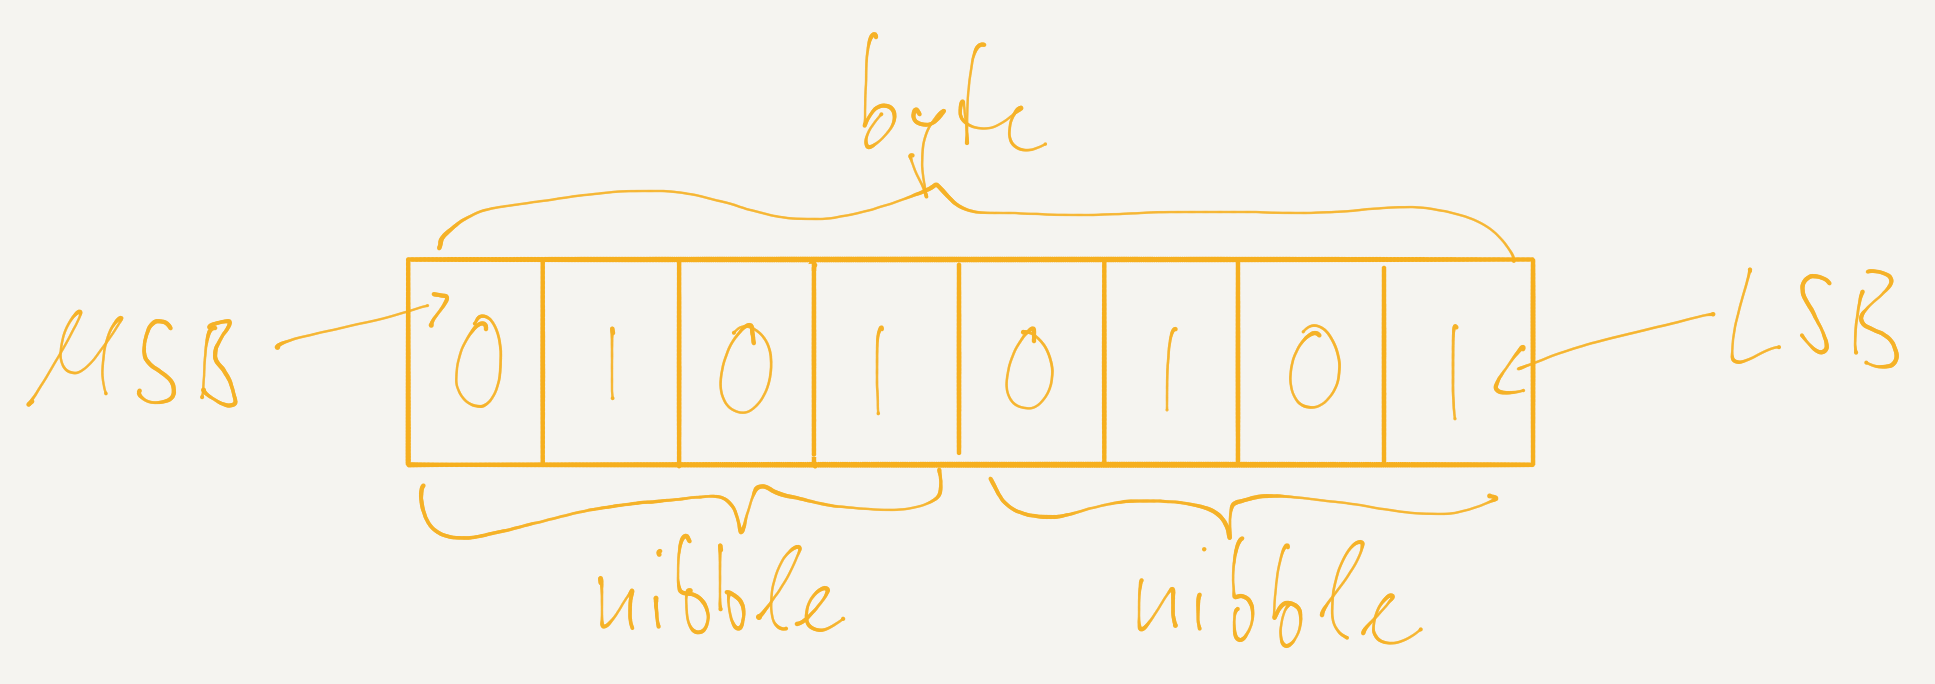 byte
MSB 0 1 0 1 0 1 0 1 LSB
nibble nibble